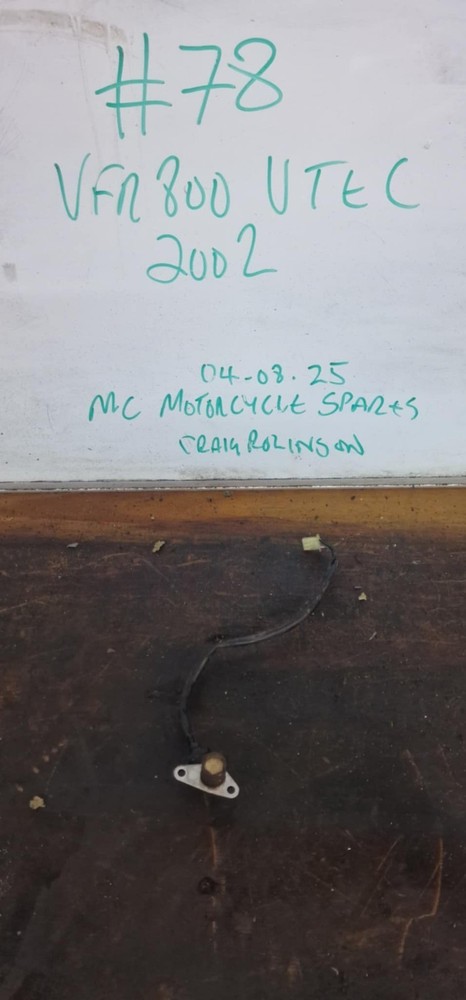 #78
VFR800 VTEC
2002
04-08.25
MC MOTORCYCLE SPARES
CRAIG ROLINSON